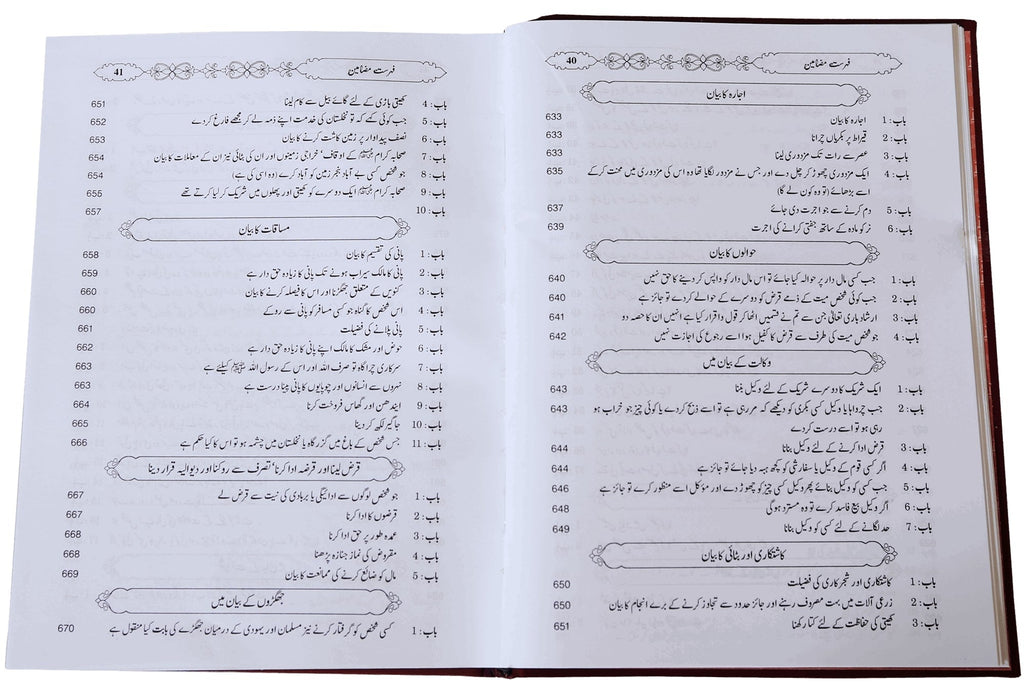 فہرست مضامین 40
اجارہ کا بیان
باب: 1 اجارہ کا بیان 633
باب: 2 قیراط پر بکریاں چرانا 633
باب: 3 عصر سے رات تک مزدوری لینا 633
باب: 4 ایک مزدوری چھوڑ کر چل دے اور جس نے مزدور لگایا تھا وہ اس کی مزدوری میں محنت کرکے 635
اسے بڑھائے (تو وہ کون لے گا)
باب: 5 دم کرنے سے جو اجرت دی جائے 637
باب: 6 نر کو مادہ کے ساتھ جفتی کرانے کی اجرت 639
حوالوں کا بیان
باب: 1 جب کسی مال دار پر حوالہ کیا جائے تو اس مال دار کو واپس کر دینے کا حق نہیں 640
باب: 2 جب کوئی شخص میت کے ذمے قرض کو دوسرے کے حوالے کردے تو جائز ہے 640
باب: 3 ارشاد باری تعالیٰ جن سے تم نے قسمیں اٹھا کر قول و اقرار کیا ہے انہیں ان کا حصہ دو 641
باب: 4 جو شخص میت کی طرف سے قرض کا کفیل ہوا اسے رجوع کی اجازت نہیں 642
وکالت کے بیان میں
باب: 1 ایک شریک کا دوسرے شریک کے لئے وکیل بننا 643
باب: 2 جب چرواہا یا وکیل کسی بکری کو دیکھے کہ مر رہی ہے تو اسے ذبح کردے یا کوئی چیز جو خراب ہو 643
رہی ہو تو اسے درست کردے
باب: 3 قرض ادا کرنے کے لئے وکیل بنانا 644
باب: 4 اگر کسی قوم کے وکیل یا سفارشی کو کچھ ہبہ دیا جائے تو جائز ہے 644
باب: 5 جب کسی کو وکیل بنائے پھر وکیل کسی چیز کو چھوڑ دے اور مؤکل اسے منظور کرے تو جائز ہے 646
باب: 6 اگر وکیل بیع فاسد کرے تو وہ مسترد ہوگی 648
باب: 7 حد لگانے کے لئے کسی کو وکیل بنانا 649
کاشتکاری اور بٹائی کا بیان
باب: 1 کاشتکاری اور شجر کاری کی فضیلت 650
باب: 2 زرعی آلات میں بہت مصروف رہنے اور جائز حدود سے تجاوز کرنے کے برے انجام کا بیان 650
باب: 3 کھیتی کی حفاظت کے لئے کتا رکھنا 651
فہرست مضامین 41
باب: 4 کھیتی بازی کے لئے گائے بیل سے کام لینا 651
باب: 5 جب کوئی کہے کہ تو نخلستان کی خدمت اپنے ذمہ لے کر مجھے فارغ کردے 652
باب: 6 نصف پیداوار پر زمین کاشت کرنے کا بیان 653
باب: 7 صحابہ کرام کے اوقاف' خراجی زمینوں اور ان کی بٹائی نیز ان کے معاملات کا بیان 654
باب: 8 جو شخص کسی بے آباد بنجر زمین کو آباد کرے (وہ اسی کی ہے) 654
باب: 9 صحابہ کرام ایک دوسرے کو کھیتی اور پھلوں میں شریک کر لیا کرتے تھے 655
باب: 10 657
مساقات کا بیان
باب: 1 پانی کی تقسیم کا بیان 658
باب: 2 پانی کا مالک سیراب ہونے تک پانی کا زیادہ حق دار ہے 659
باب: 3 کنویں کے متعلق جھگڑنا اور اس کا فیصلہ کرنے کا بیان 660
باب: 4 اس شخص کا گناہ جو کسی مسافر کو پانی سے روکے 660
باب: 5 پانی پلانے کی فضیلت 661
باب: 6 حوض اور مشک کا مالک اپنے پانی کا زیادہ حق دار ہے 662
باب: 7 سرکاری چراگاہ تو صرف اللہ اور اس کے رسول اللہ ﷺ کیلئے ہے 663
باب: 8 نہروں سے انسانوں اور چوپایوں کا پانی پینا درست ہے 663
باب: 9 ایندھن اور گھاس فروخت کرنا 664
باب: 10 جاگیر لکھ کر دینا 665
باب: 11 جس شخص کے باغ میں گزرگاہ یا نخلستان میں چشمہ ہو تو اس کا کیا حکم ہے 666
قرض لینا اور قرضہ ادا کرنا' تصرف سے روکنا اور دیوالیہ قرار دینا
باب: 1 جو شخص لوگوں سے ادائیگی یا بربادی کی نیت سے قرض لے 667
باب: 2 قرضوں کا ادا کرنا 667
باب: 3 عمدہ طور پر حق ادا کرنا 668
باب: 4 مقروض کی نماز جنازہ پڑھنا 668
باب: 5 مال کو ضائع کرنے کی ممانعت کا بیان 669
جھگڑوں کے بیان میں
باب: 1 کسی شخص کو گرفتار کرنے نیز مسلمان اور یہودی کے درمیان جھگڑے کی بابت کیا منقول ہے 670